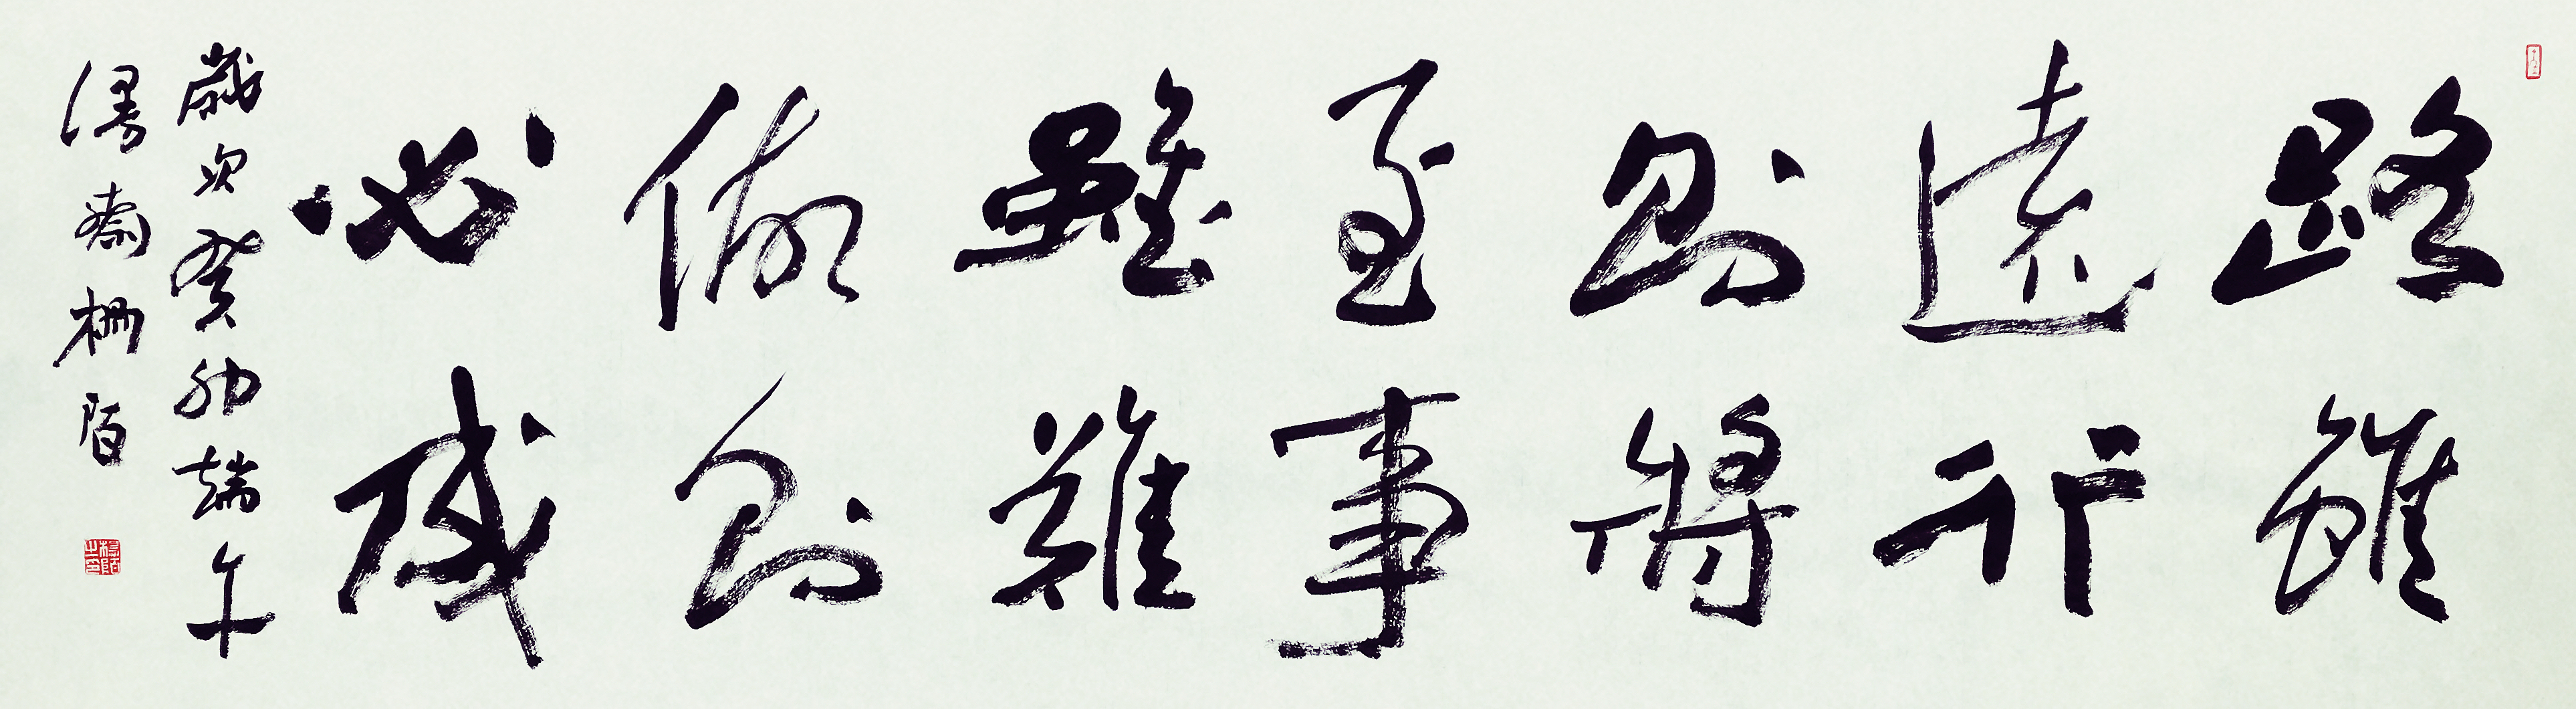 路雖
遠行
則將
至事
雖難
做則
必成
歲次癸卯端午
漫齋柵陌